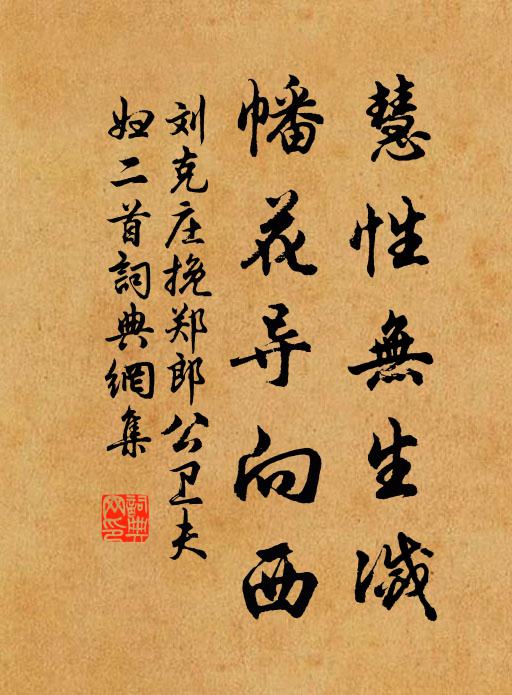 慧性無生滅
幡花导向西
刘克庄挽郑郎公卫夫
妇二首詞典網集
詞典
网印